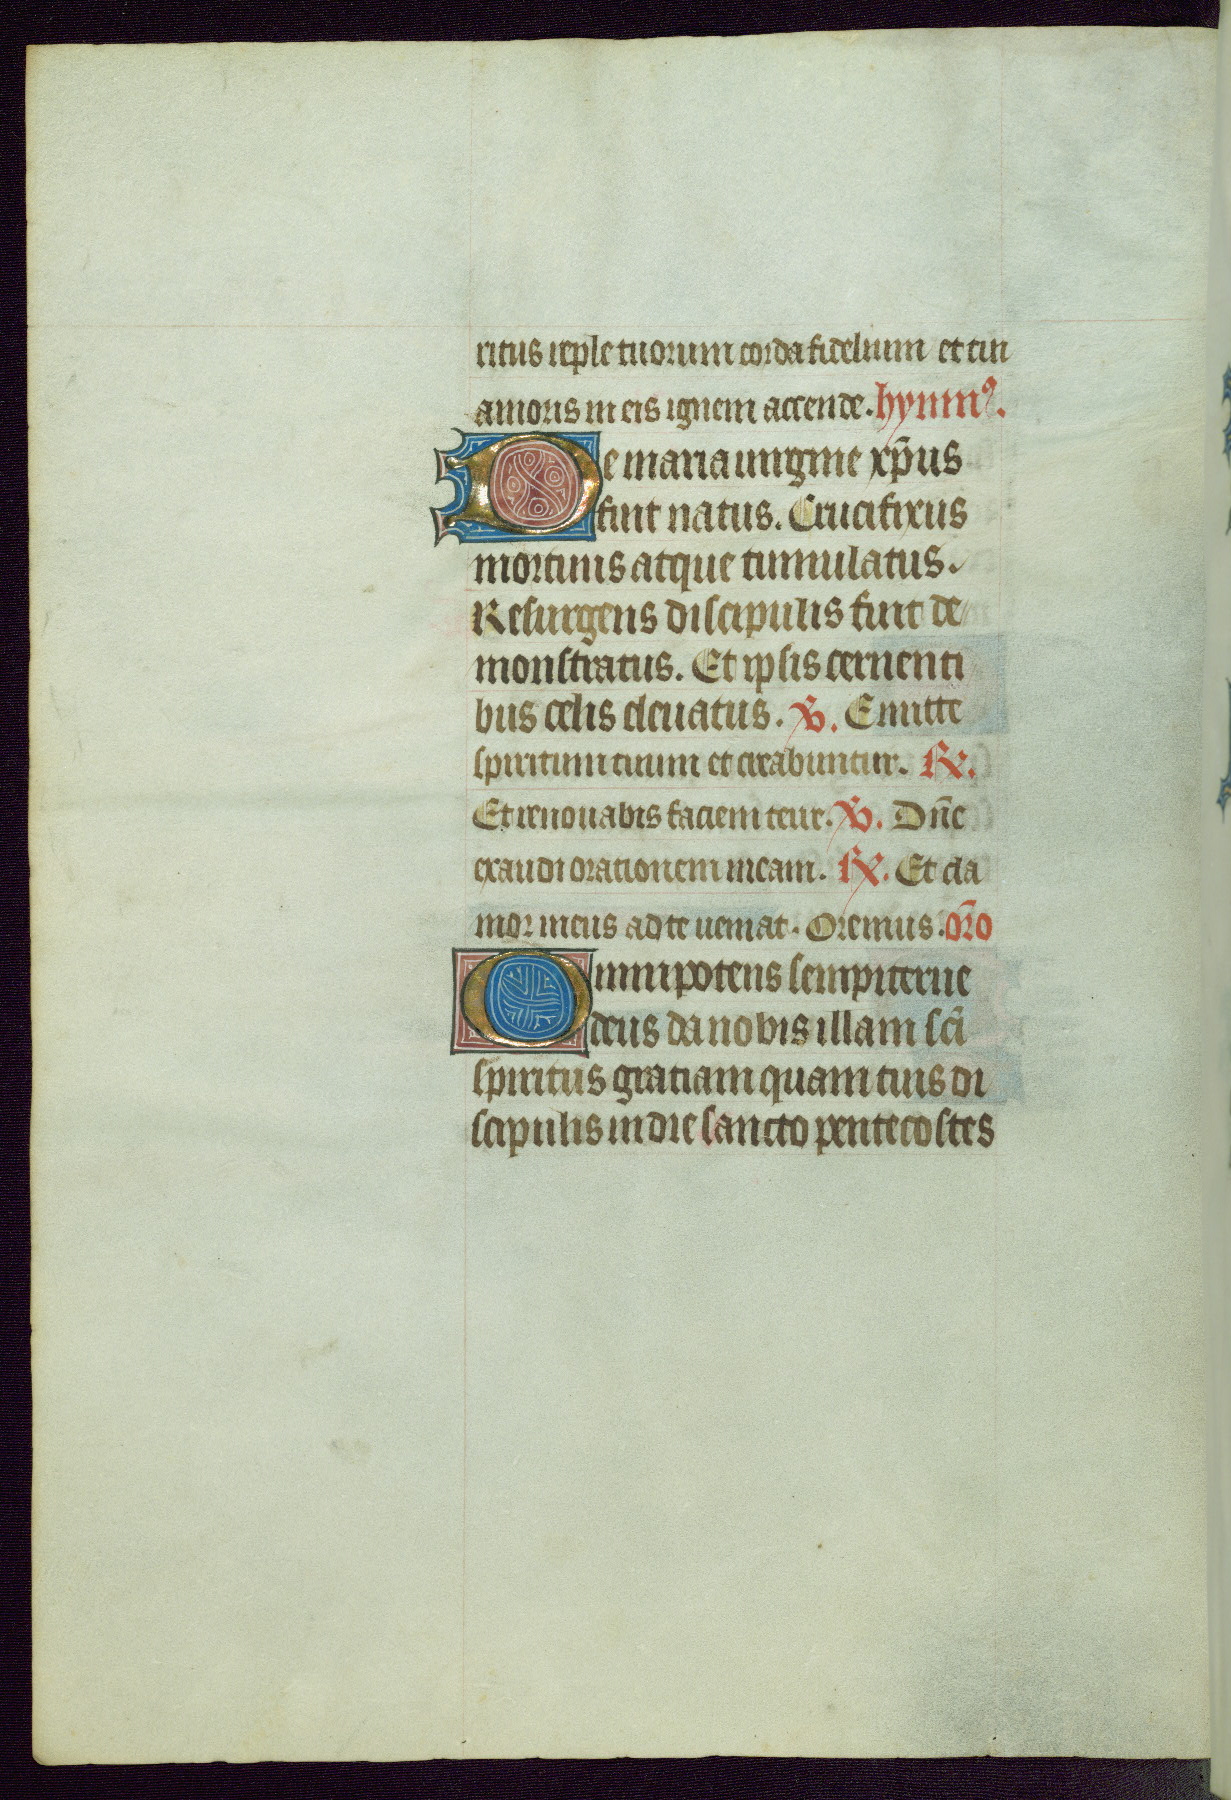 ritus reple tuorum corda fidelium et tui
amoris in eis ignem accende. hymnꝰ.
De maria uirgine xp̄us
fuit natus. Crucifixus
mortuus atque tumulatus.
Resurgens discipulis fuit de
monstratus. Et ipsis cernenti
bus celis eleuatus. ℣. Emitte
spiritum tuum et creabuntur. ℟.
Et renouabis faciem terre. ℣. Dn̄e
exaudi orationem meam. ℟. Et cla
mor meus ad te ueniat. Oremus. or̄o
Omnipotens sempiterne
deus da nobis illam sc̄i
spiritus gratiam quam tuis di
scipulis in die sancto pentecostes